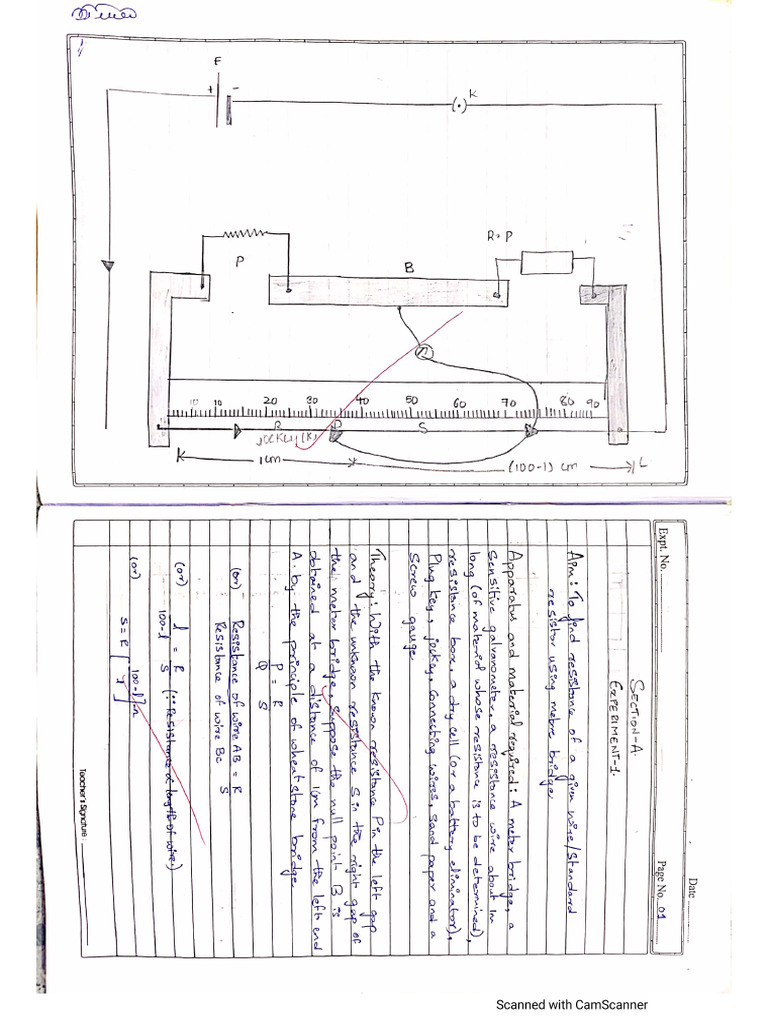 E
+ -
(·) K
R·P
P
B
10 10 20 30 40 50 60 70 80 90
R P S
jockey (K)
K 1cm (100-1) cm L
Date
Expt. No. Page No. 01
SECTION-A.
EXPERIMENT-1.
Aim: To find resistance of a given wire/standard
resistor using metre bridge.
Apparatus and material required: A meter bridge, a
sensitive galvanometer, a resistance wire about 1m
long (of material whose resistance is to be determined),
resistance box, a dry cell (or a battery eliminator),
Plug key, jockey, connecting wires, sand paper and a
Screw gauge.
Theory: With the known resistance P in the left gap
and the unknown resistance S in the right gap of
the meter bridge, suppose the null point B is
obtained at a distance of 1cm from the left end
A. by the principle of wheatstone bridge.
P/Q = R/S
(or) Resistance of wire AB / Resistance of wire Bc = R/S
(or) l/100-l = R/S (∵ resistance ∝ length of wire.)
(or) S = R [100-l/l]
Teacher's Signature
Scanned with CamScanner